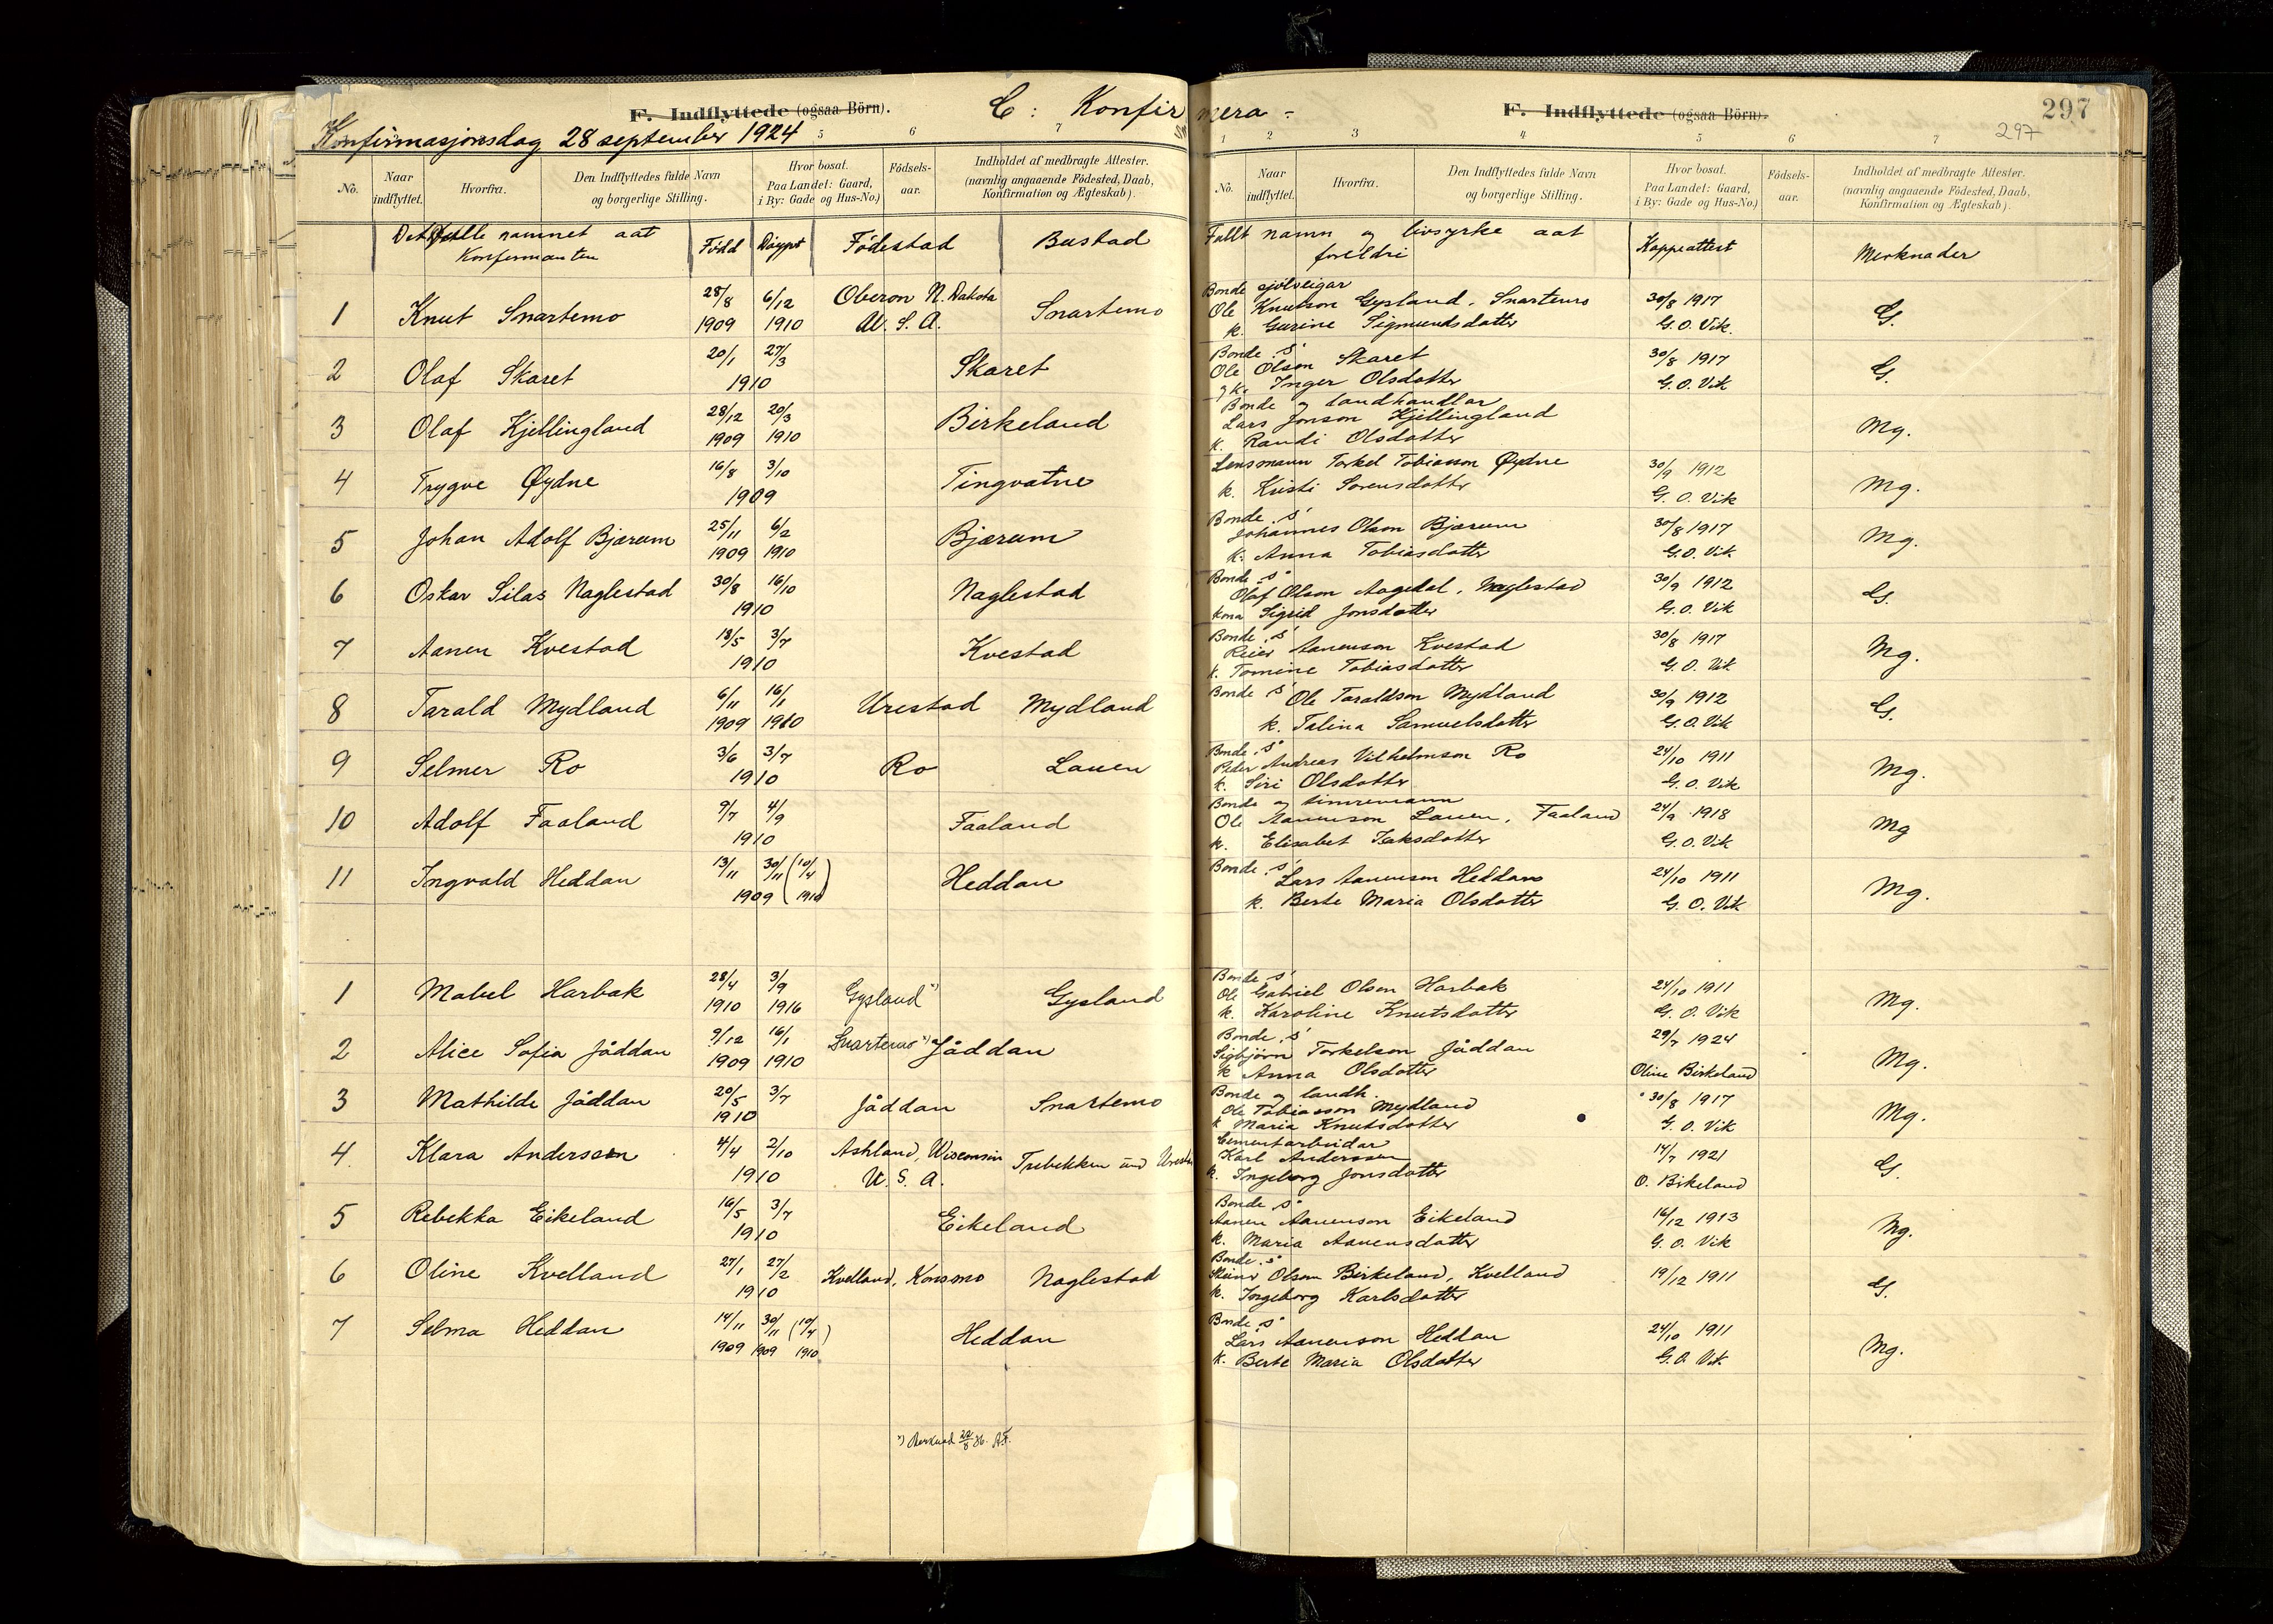 F. Indflyttede (ogsaa Börn). C: Konfir
Konfirmasjonsdag 28 september 1924
5 6 7
No. Naar indflyttet. Hvorfra. Den Indflyttedes fulde Navn og borgerlige Stilling. Hvor bosat. Paa Landet: Gaard, i By: Gade og Hus-No.) Födsels-aar. Indholdet af medbragte Attester. (navnlig angaaende Födested, Daab, Konfirmation og Ægteskab).
Det fulle namnet aat Konfirmanten Född Döypt Födestad Bustad
1 Knut Snartemo 28/8 1909 6/12 1910 Oberon N. Dakota U. S. A. Snartemo
2 Olaf Skaret 20/1 27/3 1910 Skaret
3 Olaf Kjellingland 28/12 1909 20/3 1910 Birkeland
4 Trygve Øydne 16/8 3/10 1909 Tingvatne
5 Johan Adolf Bjærum 25/11 1909 6/2 1910 Bjærum
6 Oskar Silas Naglestad 30/8 16/10 1910 Naglestad
7 Aanen Kvestad 18/5 3/7 1910 Kvestad
8 Tarald Mydland 6/11 1909 16/1 1910 Urestad Mydland
9 Selmer Ro 3/6 3/7 1910 Ro Lauen
10 Adolf Faaland 9/7 4/9 1910 Faaland
11 Ingvald Heddan 13/11 30/11 1909 (10/4 1910) Heddan
1 Mabel Harbak 28/4 1910 3/9 1916 Gysland *) Gysland
2 Alice Sofia Jåddan 9/12 1909 16/1 1910 Snartemo *) Jåddan
3 Mathilde Jåddan 20/5 3/7 1910 Jåddan Snartemo
4 Klara Anderssen 4/4 2/10 1910 Ashland, Wisconsin U. S. A. Trebekken und
5 Rebekka Eikeland 16/5 3/7 1910 Eikeland
6 Oline Kvelland 27/1 27/2 1910 Kvelland, Konsmo Naglestad
7 Selma Heddan 14/11 1909 30/11 1909 (10/4 1910) Heddan
mera - F. Indflyttede (ogsaa Börn). 297
297
1 2 3 4 5 6 7
No. Naar indflyttet. Hvorfra. Den Indflyttedes fulde Navn og borgerlige Stilling. Hvor bosat. Paa Landet: Gaard, i By: Gade og Hus-No.) Födsels-aar. Indholdet af medbragte Attester. (navnlig angaaende Födested, Daab, Konfirmation og Ægteskab).
Fullt namn og livsyrke aat foreldri Koppeattest Merknader
Bonde sjølveigar
Ole Knutson Gysland, Snartemo 30/8 1917
k. Gurine Sigmundsdotter G. O. Vik. G.
Bonde. S'
Ole Olson Skaret 30/8 1917
og k. Inger Olsdotter G. O. Vik G.
Bonde og landhandlar
Lars Jonson Kjellingland
k. Randi Olsdotter Mg.
Lensmann Torkel Tobiasson Øydne 30/9 1912
k. Kristi Sorensdotter G. O. Vik Mg.
Bonde. S'
Johannes Olson Bjærum 30/8 1917
k. Anna Tobiasdotter G. O. Vik Mg.
Bonde. S'
Olaf Olson Aagedal, Naglestad 30/9 1912
kona Sigrid Jonsdotter G. O. Vik G.
Bonde. S'
Reier Aanenson Kvestad 30/8 1917
k. Tomine Tobiasdotter G. O. Vik Mg.
Bonde S' Ole Taraldson Mydland 30/9 1912
k. Talina Samuelsdotter G. O. Vik G.
Bonde. S'
Peder Andreas Vilhelmson Ro 24/10 1911
k. Siri Olsdotter G. O. Vik Mg.
Bonde og timremann
Ole Aanenson Lauen, Faaland 24/9 1918
k. Elisabet Isaksdotter G. O. Vik Mg
Bonde. S'
Lars Aanenson Heddan 24/10 1911
k. Berte Maria Olsdotter G. O. Vik Mg.
Bonde S'
Ole Gabriel Olson Harbak 24/10 1911
k. Karoline Knutsdotter G. O. Vik Mg.
Bonde. S'
Sigbjørn Torkelson Jåddan 29/7 1924
k Anna Olsdotter Oline Birkeland Mg.
Bonde og landh.
Ole Tobiasson Mydland 30/8 1917
k Maria Knutsdotter G. O. Vik Mg.
Cementarbeidar
Karl Anderssen 14/7 1921
k. Ingeborg Jonsdotter O. Birkeland G.
Bonde S'
Aanen Aanenson Eikeland 16/12 1913
k. Maria Aanensdotter G. O. Vik Mg.
Bonde. S'
Olson Birkeland, Kvelland 19/12 1911
k. Ingeborg Karlsdotter G.
Bonde S'
Lars Aanenson Heddan 24/10 1911
k. Berte Maria Olsdotter G. O. Vik Mg.